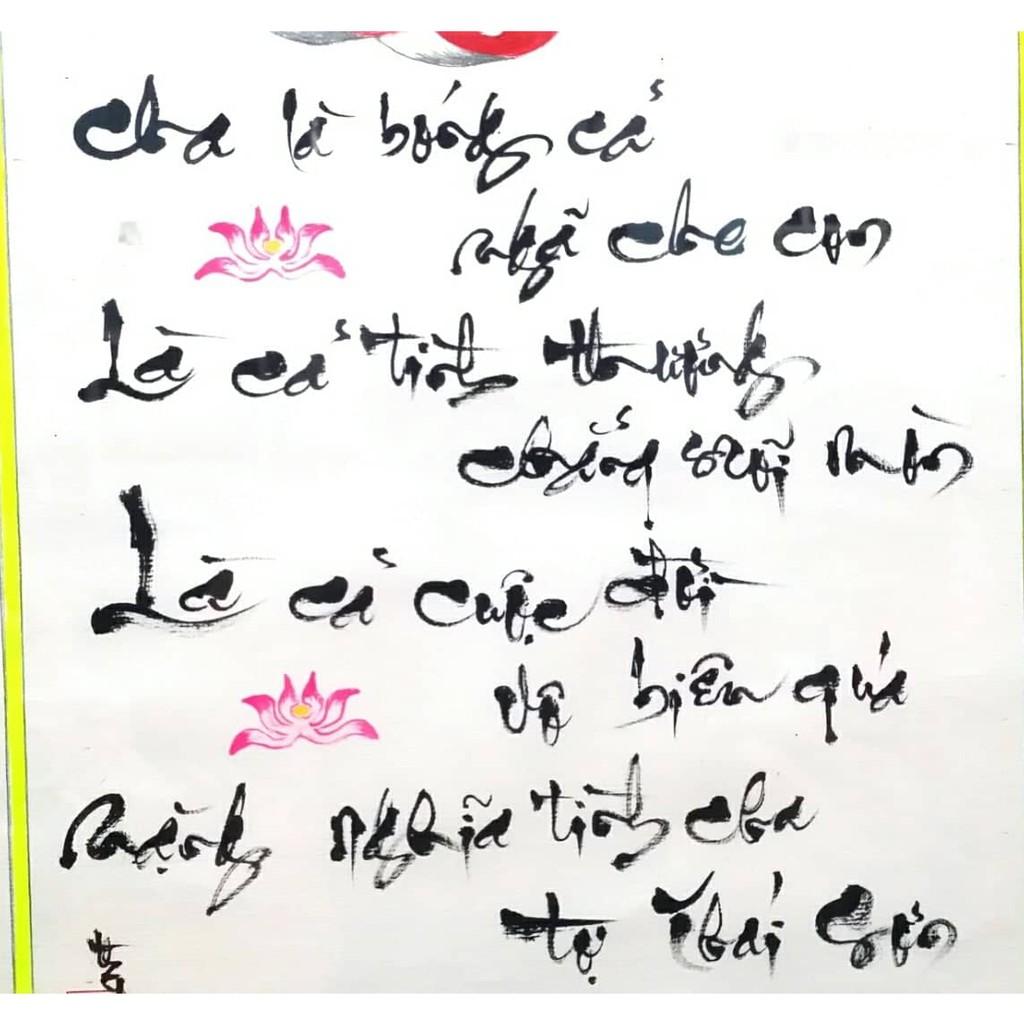 Cha là bóng cả
ngã che con
Là cả tình thương
chẳng mòn
Là cả cuộc đời
vô biên quá
Nặng nghĩa tình cha
tự Thái Sơn